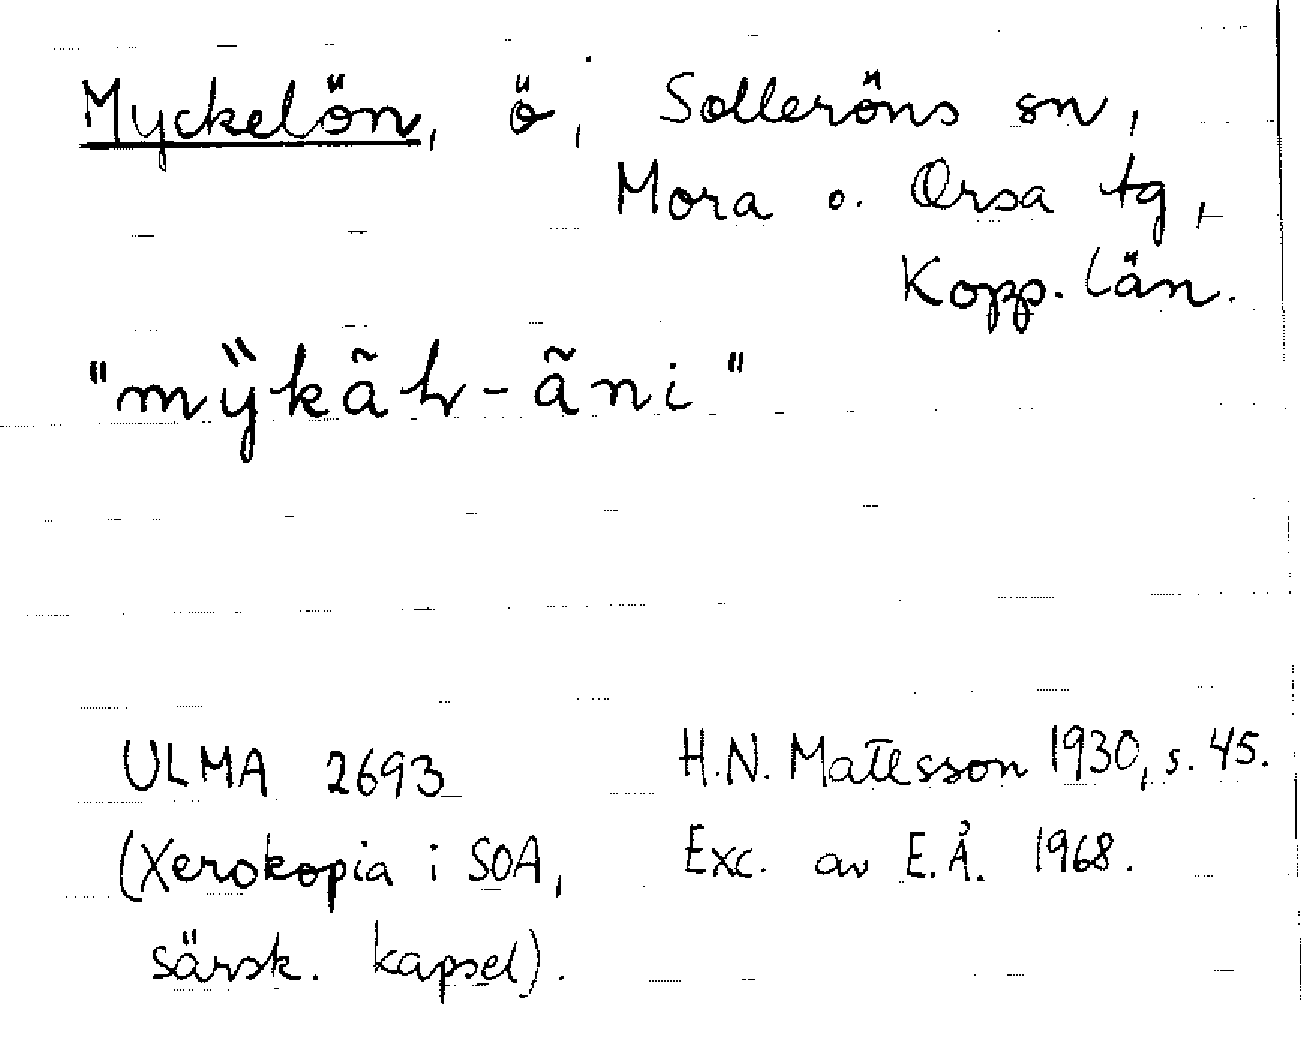 Myckelön, ö, Solleröns sn,
Mora o. Orsa tg,
Kopp. län.
"mÿkãlr-ãni"
ULMA 2693 H.N. Matesson 1930, s. 45.
(Xerokopia i SOA, Exc. av E.Å. 1968.
särsk. kapsel).